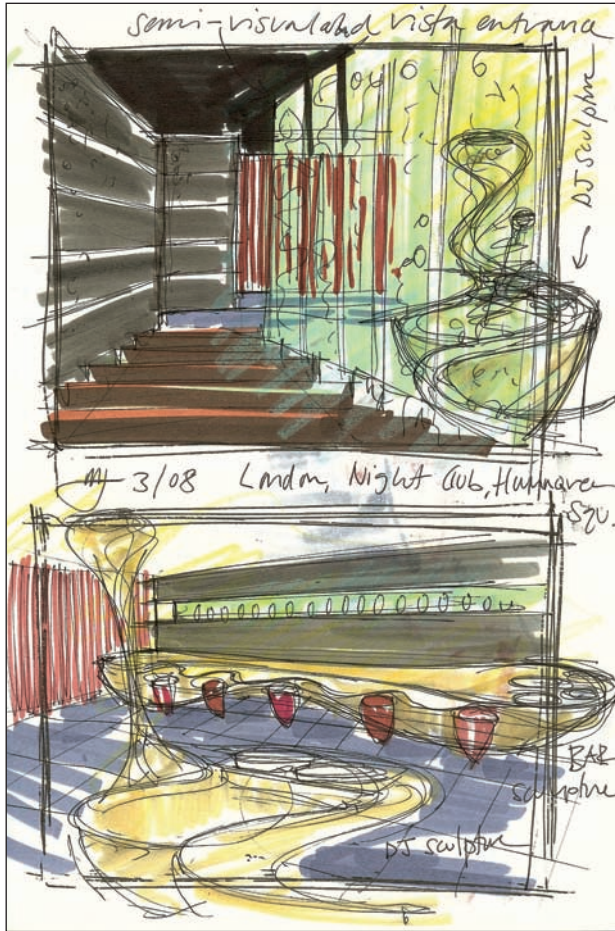 semi-visualated vista entrance
DJ sculpture
3/08 London, Night Club, Hannover
Squ.
BAR
sculpture
DJ sculpture